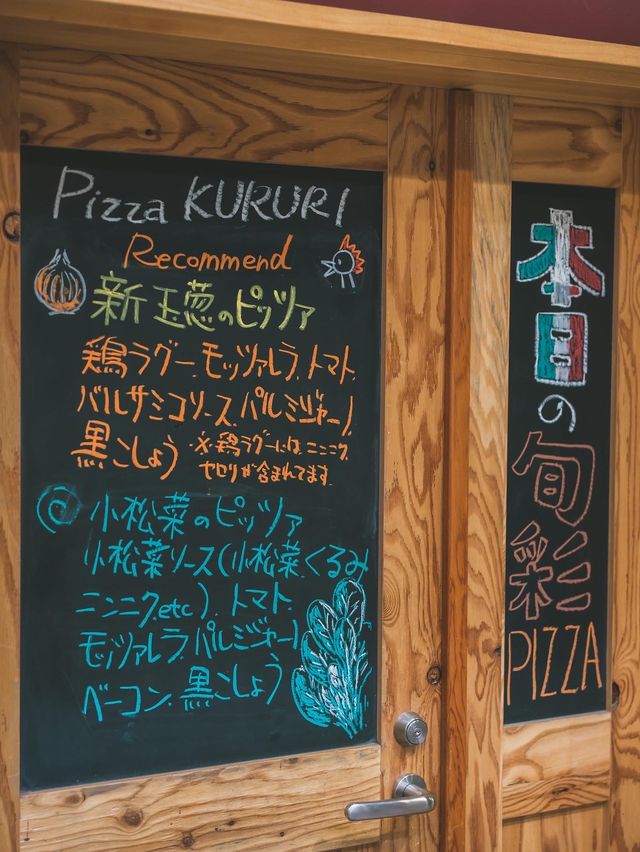 Pizza KURURI
Recommend
新玉葱のピッツァ
鶏ラグー、モッツァレラ、トマト、
バルサミコソース、パルミジャーノ
黒こしょう
※鶏ラグーには、ニンニク、
セロリが含まれてます。
@ 小松菜のピッツァ
小松菜ソース(小松菜、くるみ
ニンニク,etc)、トマト、
モッツァレラ、パルミジャーノ
ベーコン、黒こしょう
本日の旬彩PIZZA